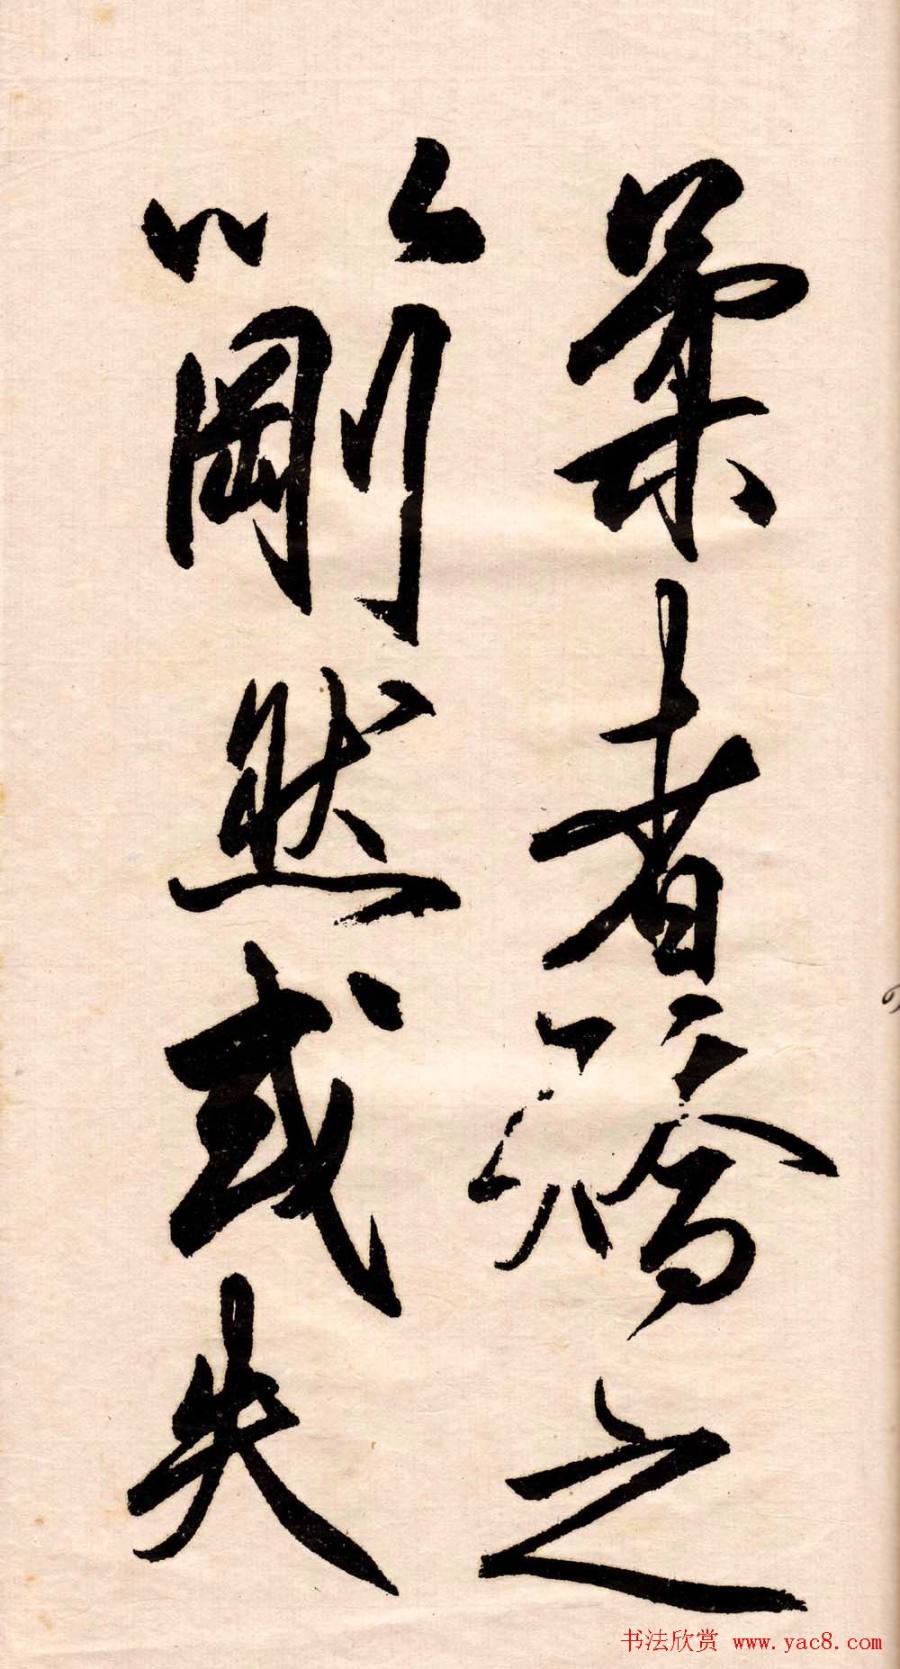 柔者矯之
以剛然或失
书法欣赏 www.yac8.com